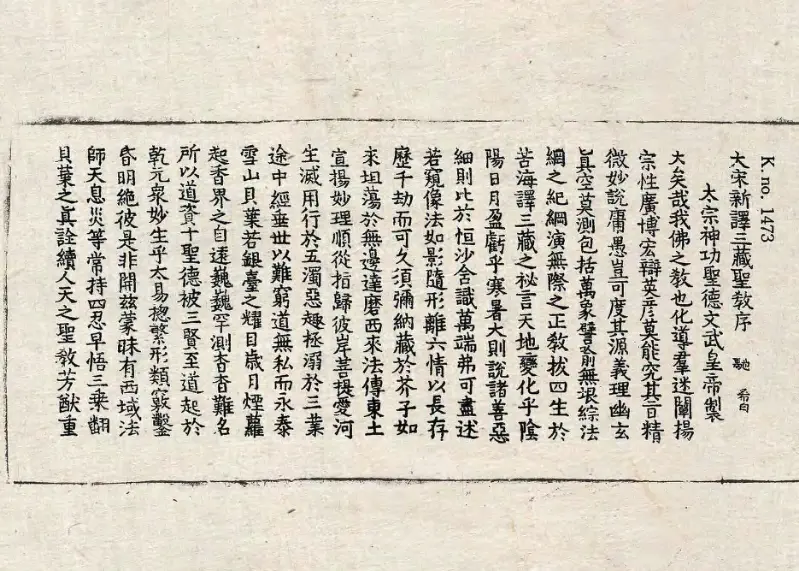 K. no. 1473
大宋新譯三藏聖教序 馳
太宗神功聖德文武皇帝製
大矣哉我佛之教也化導羣迷闡揚
宗性廣博宏辯英彦莫能究其旨精
微妙說庸愚豈可度其源義理幽玄
真空莫測包括萬象譬喻無垠綜法
網之紀綱演無際之正教拔四生於
苦海譯三藏之祕言天地變化乎陰
陽日月盈虧乎寒暑大則說諸善惡
細則比於恒沙含識萬端弗可盡述
若窺像法如影隨形離六情以長存
歷千劫而可久須彌納藏於芥子如
来坦蕩於無邊達磨西来法傳東土
宣揚妙理順從指歸彼岸菩提愛河
生滅用行於五濁惡趣拯溺於三業
途中經垂世以難窮道無私而永泰
雪山貝葉若銀臺之耀目歲月煙蘿
起香界之自遠巍巍罕測杳杳難名
所以道資十聖德被三賢至道起於
乾元衆妙生乎太易揔繁形類竅鑿
昏明絶彼是非開兹蒙昧有西域法
師天息災等常持四忍早悟三乗翻
貝葉之真詮續人天之聖教芳猷重